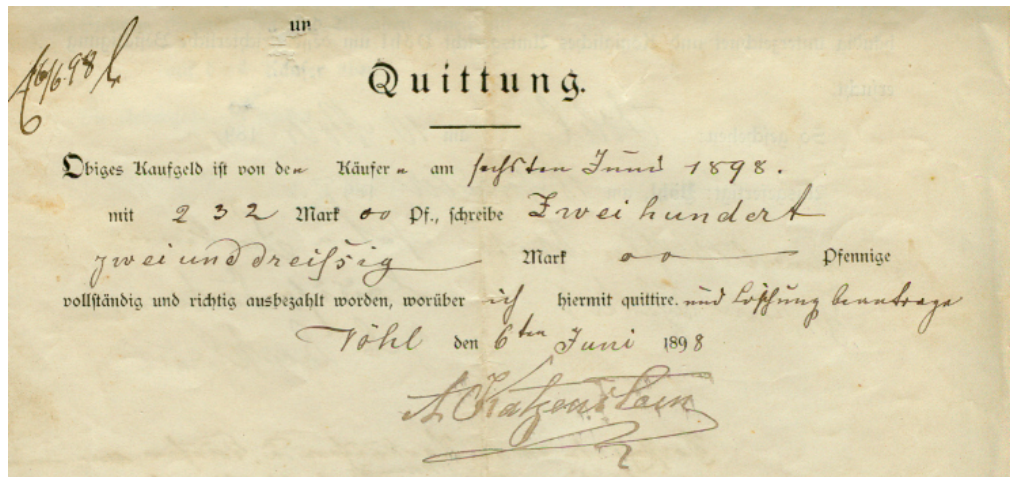 un
16/6.98
Quittung.
Obiges Kaufgeld ist von den Käufern am sechsten Juni 1898.
mit 232 Mark 00 Pf., schreibe Zweihundert
zweiunddreissig Mark 00 Pfennige
vollständig und richtig ausbezahlt worden, worüber ich hiermit quittire. und Löschung beantrage
Vöhl den 6ten Juni 1898
A. Katzenstein